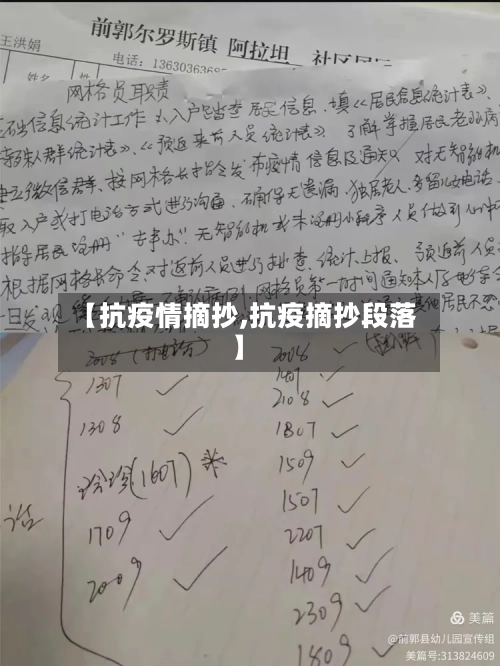 前郭尔罗斯镇 阿拉坦 社区居
王洪娟
电话:136303636
姓名
网格员职责
础信息统计工作 入户踏查 居民信息、填《居民信息统计表》、
殊人群统计表》、《预返来前人员统计表》 了解掌握居民老弱病
立微信群、按网格长指令发布疫情信息及通知 对无智能机
取入户或打电话方式进行沟通、确保无遗漏、独居老人、多留儿女电话、
指导居民注册“吉事办”、无智能机或未注册小程序人员做到心中
根据网格长命令对返前人员进行排查、统计上报、预返前人员
一日发现 网格员第一时间通知本人
【抗疫情摘抄,抗疫摘抄段落
】
2008
1307
1308
玲玲(1607)
1709
2009
话
2008
1407
2108
1807
1509
1507
2207
1409
2309
1809
美篇
@前郭县幼儿园宣传组
美篇号:313824609